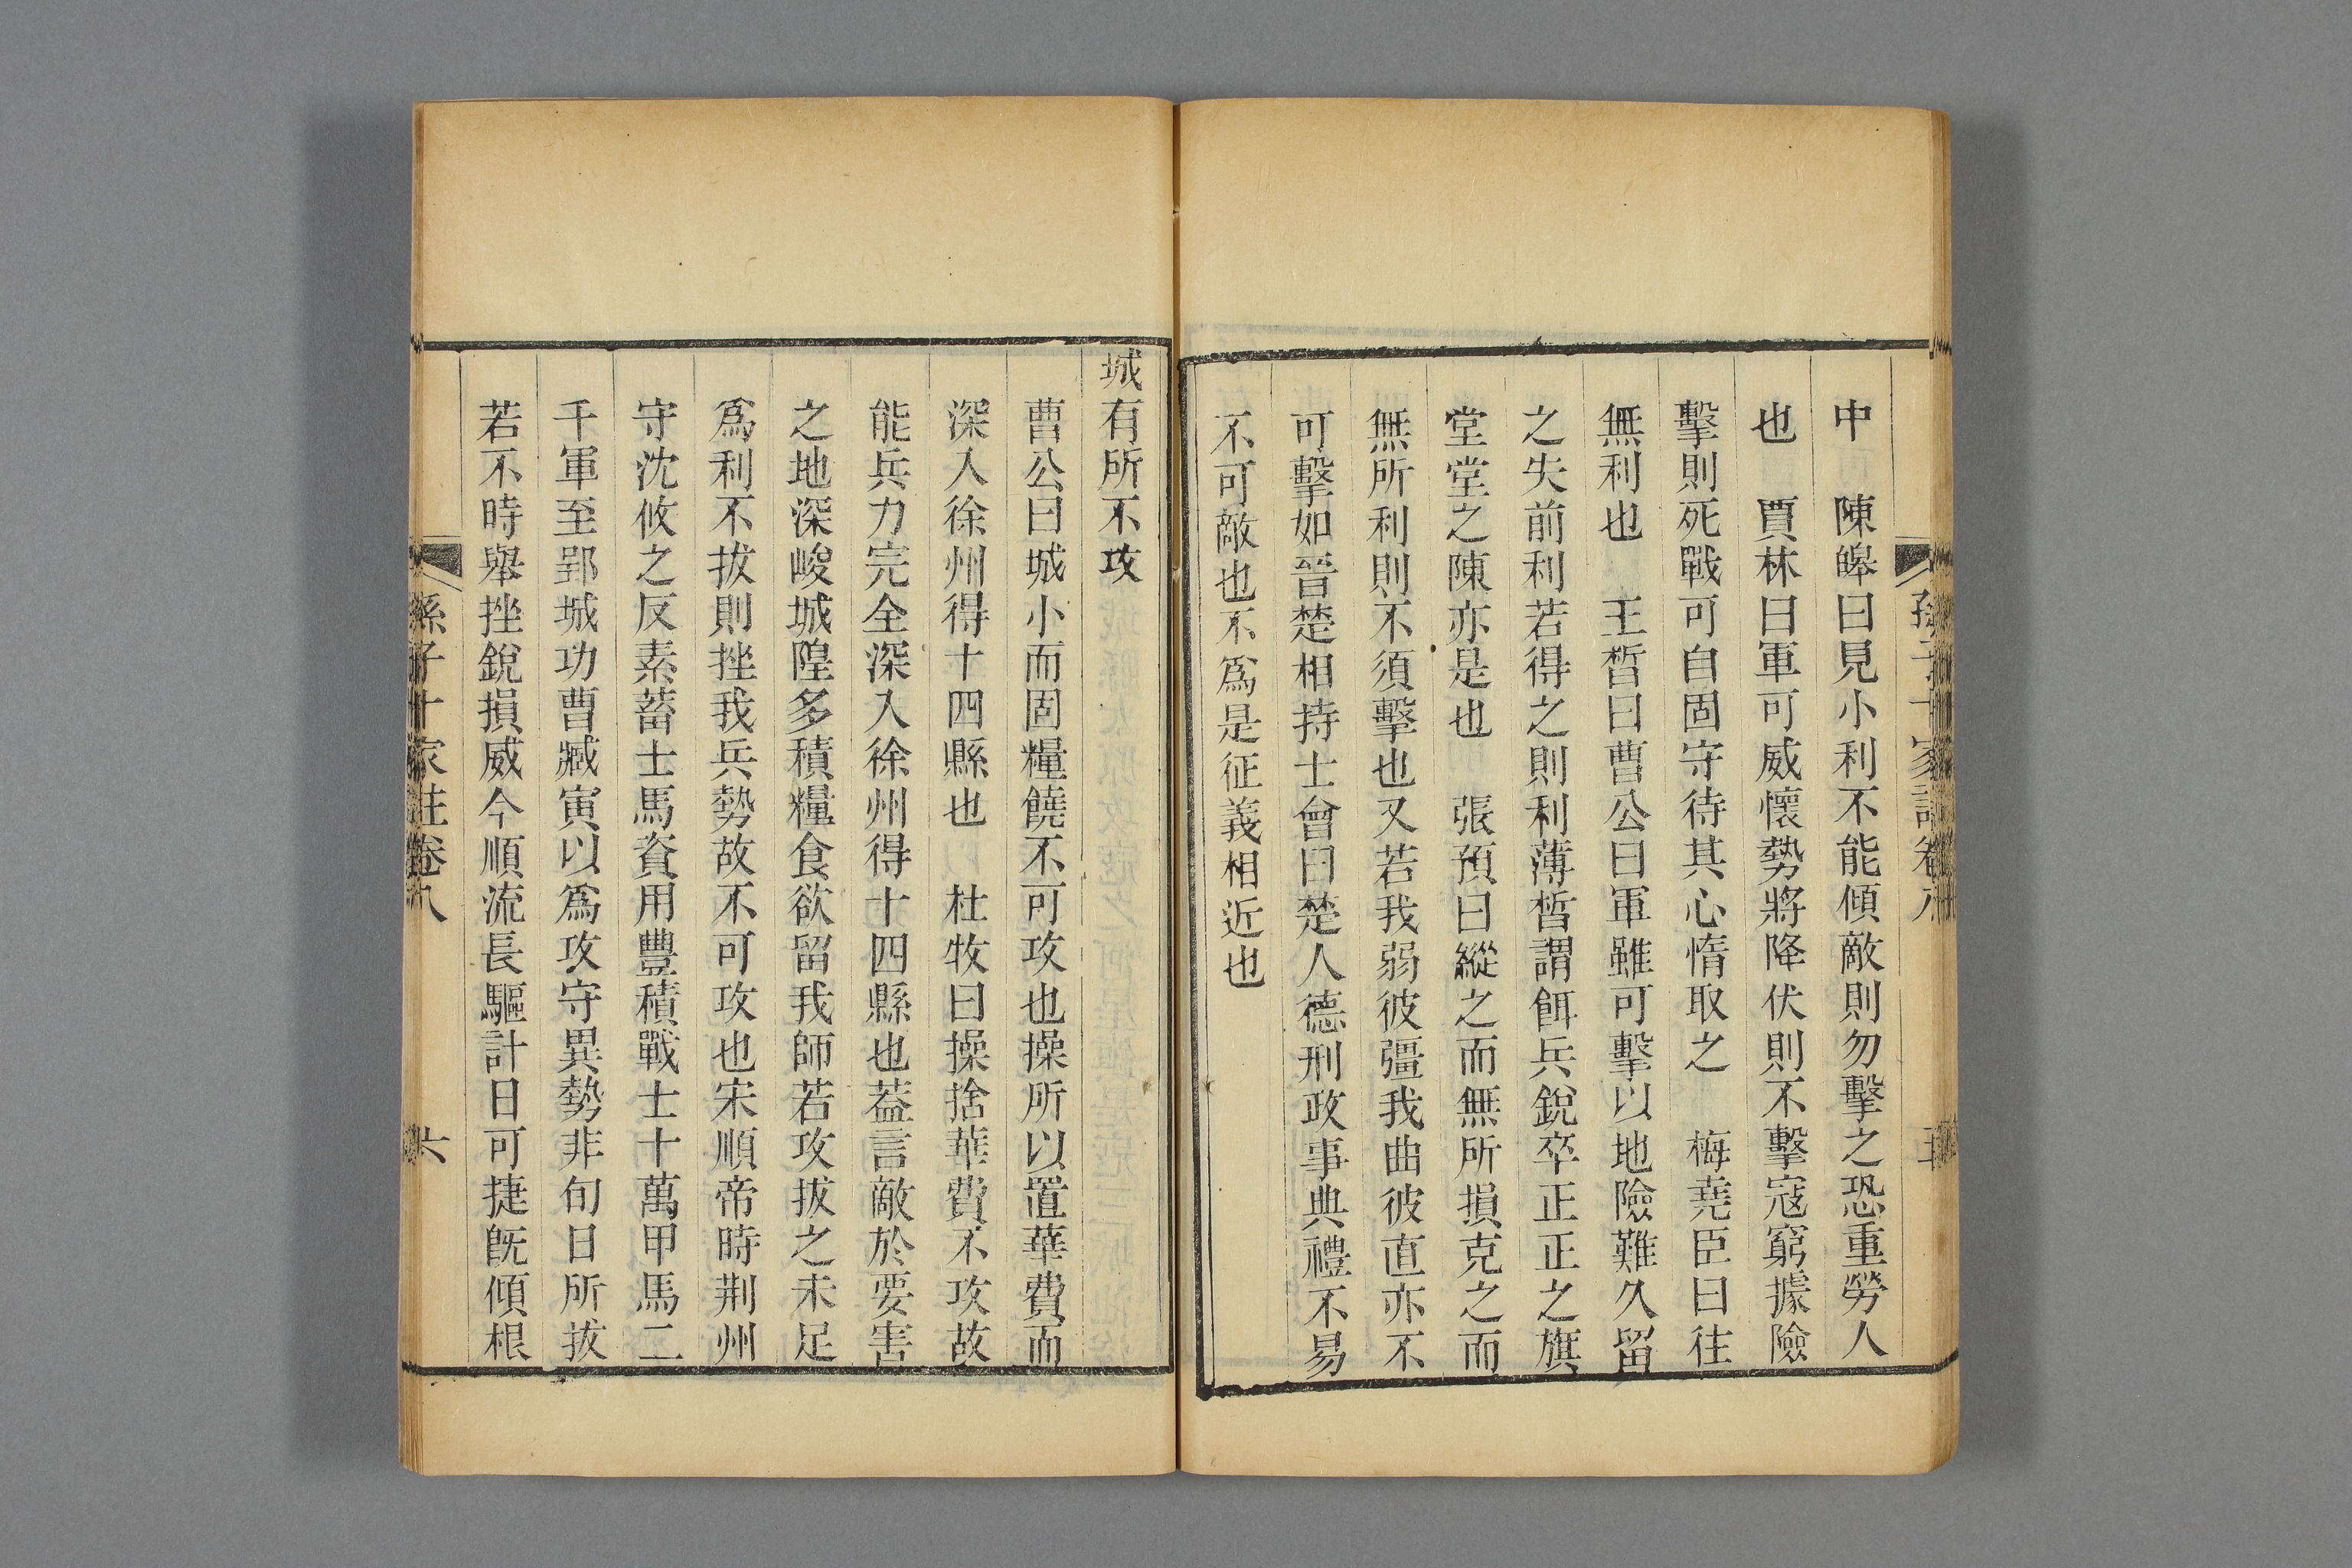 孫子十家註卷八
五
中　陳皥曰見小利不能傾敵則勿擊之恐重勞人
也　賈林曰軍可威懷勢將降伏則不擊寇窮據險
擊則死戰可自固守待其心惰取之　梅堯臣曰往
無利也　王晳曰曹公曰軍雖可擊以地險難久留
之失前利若得之則利薄晳謂餌兵銳卒正正之旗
堂堂之陳亦是也　張預曰縱之而無所損克之而
無所利則不須擊也又若我弱彼彊我曲彼直亦不
可擊如晉楚相持士會曰楚人德刑政事典禮不易
不可敵也不爲是征義相近也
城有所不攻
曹公曰城小而固糧饒不可攻也操所以置華費而
深入徐州得十四縣也　杜牧曰操捨華費不攻故
能兵力完全深入徐州得十四縣也葢言敵於要害
之地深峻城隍多積糧食欲留我師若攻拔之未足
爲利不拔則挫我兵勢故不可攻也宋順帝時荆州
守沈攸之反素蓄士馬資用豐積戰士十萬甲馬二
千軍至郢城功曹臧寅以爲攻守異勢非旬日所拔
若不時舉挫銳損威今順流長驅計日可捷旣傾根
孫子十家註卷八
六